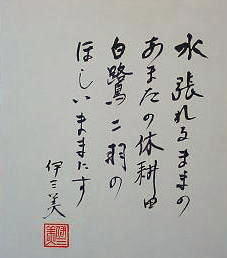 水張れるままの
あまたの休耕田
白鷺二羽の
ほしいままにす
伊三美